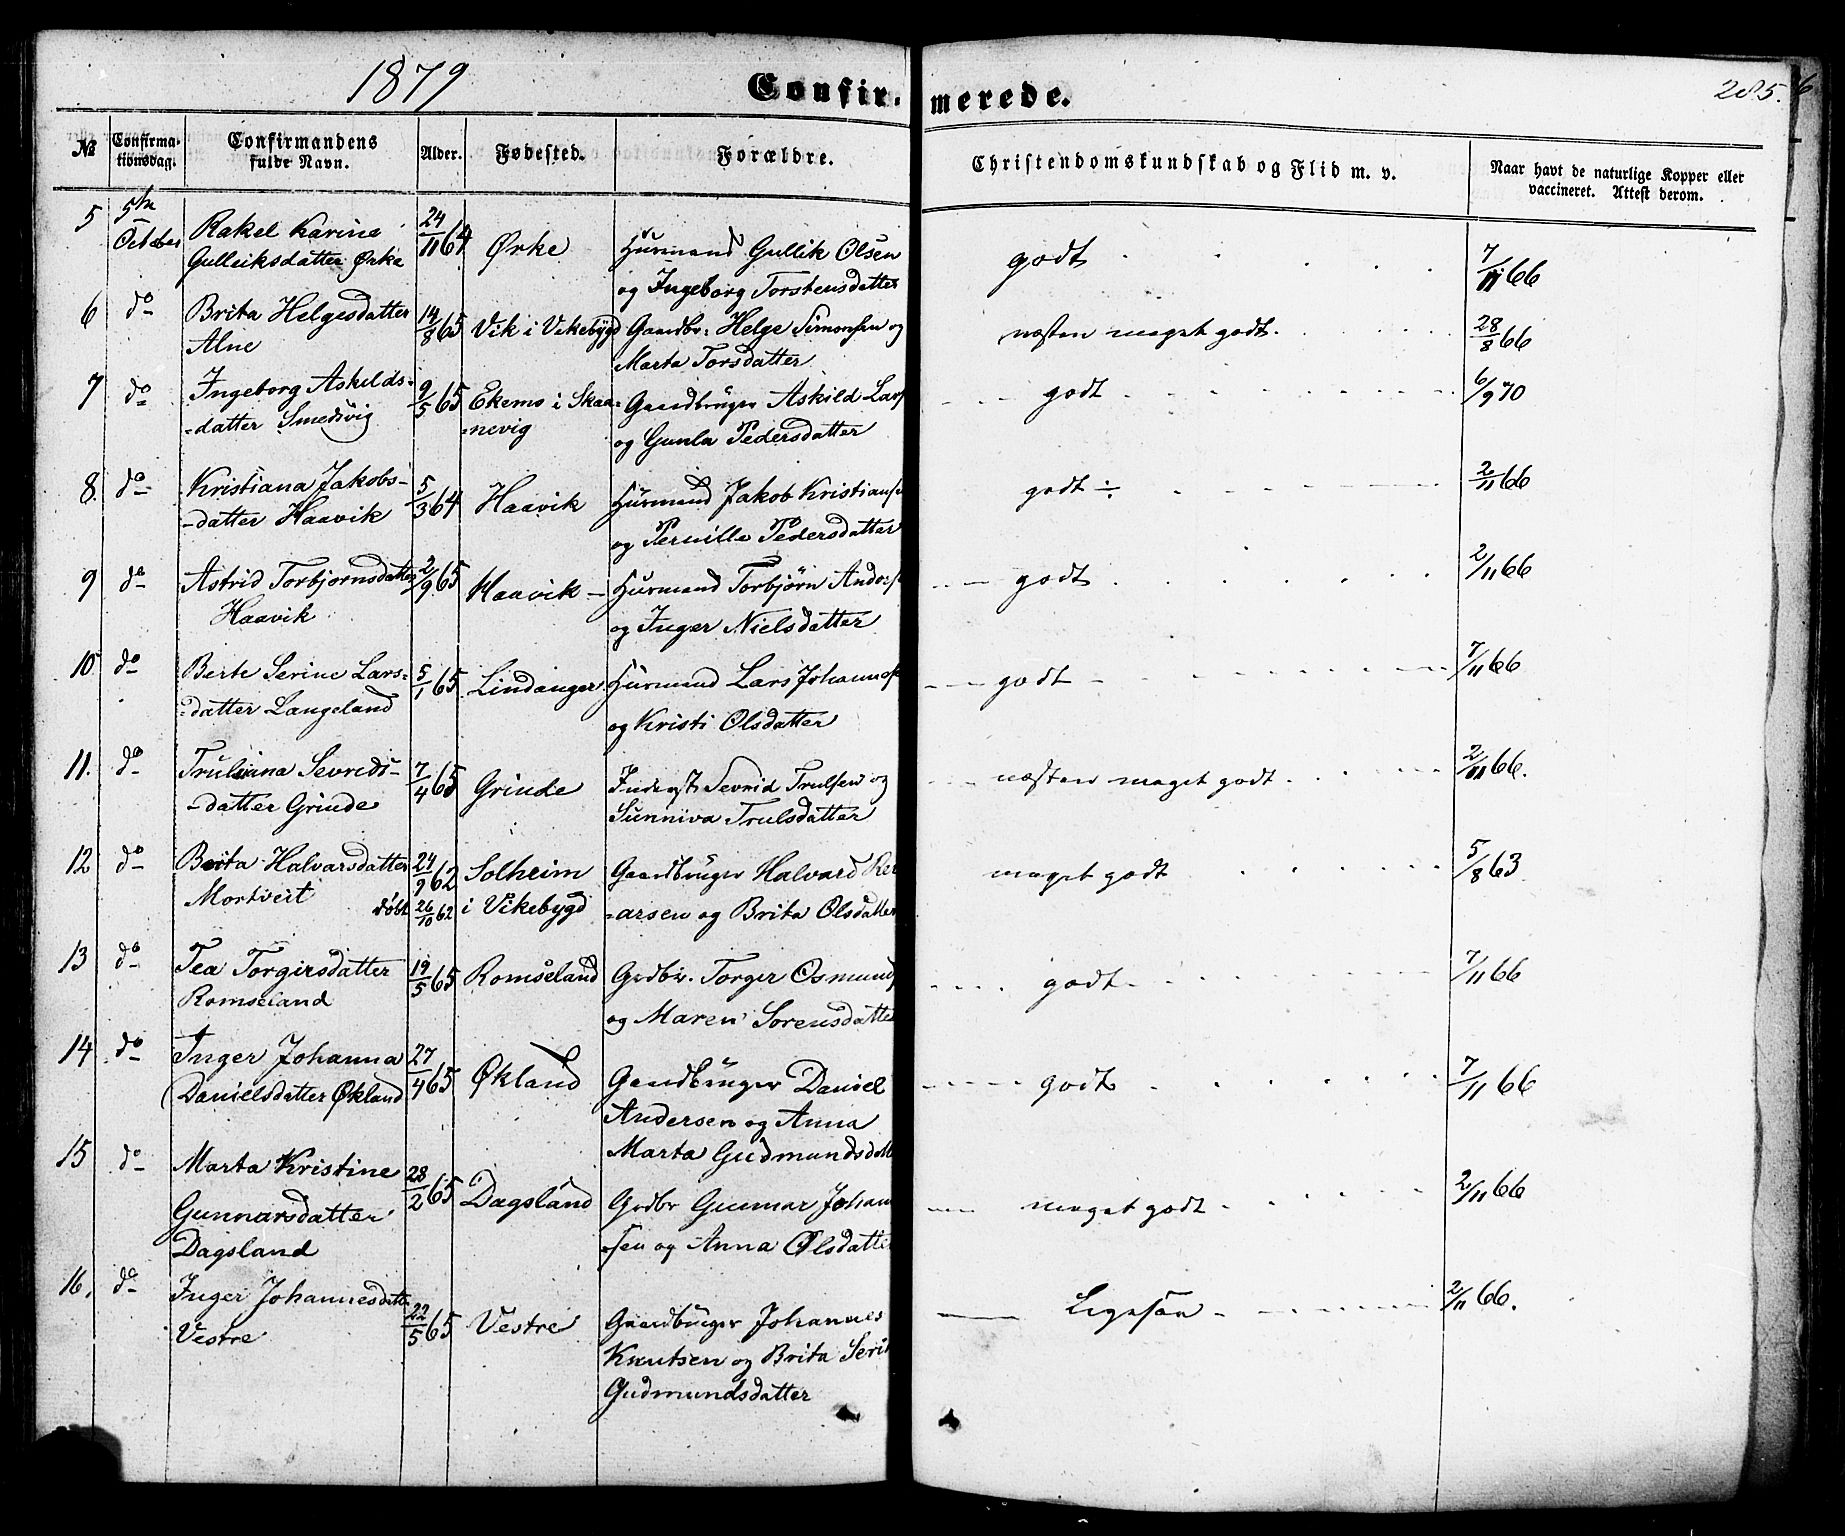 1879 Confir- merede. 285.
№ Confirma-tionsdag. Confirmandens fulde Navn. Alder. Fødested. Forældre. Christendomskundskab og Flid m. v. Naar havt de naturlige Kopper eller vaccineret. Attest derom.
5 5te October Rakel Karine 24/11 64 Ørke Husmand Gullik Olsen godt 7/11 66
Gulleiksdatter Ørke og Ingeborg Torstensdatter
6 do Brita Helgesdatter 14/8 65 Vik i Vikebygd Gaardbr. Helge Simonsen og næsten meget godt. 28/8 66
Alne Marta Torsdatter
7 do Ingeborg Askilds- 9/5 65 Ekemo i Skaa- Gaardbruger Askild Lars godt 6/9 70
-datter Smedsvig -nevig og Gunla Pedersdatter
8. do Kristiana Jakobs- 5/3 64 Haavik Husmand Jakob Kristians godt ÷ 2/11 66
-datter Haavik og Pernille Pedersdatter
9 do Astrid Torbjornsdatter 2/9 65 Haavik Husmand Torbjörn Anders godt 2/11 66
Haavik og Inger Nielsdatter
10 do Berte Serine Lars- 5/1 65 Lindanger Husmand Lars Johannes godt 7/11 66
-datter Langeland og Kristi Olsdatter
11. do Trulsina Sevreds- 7/4 65 Grinde Inderst Sevrid Trulsen og næsten meget godt 2/11 66.
-datter Grinde Sunniva Trulsdatter
12 do Brita Halvarsdatter 24/9 62 Solheim Gaardbruger Halvard Rei meget godt 5/8 63
Mortveit døbt 26/10 62 i Vikebygd -arsen og Brita Olsdatter
13 do Tea Torgirsdatter 19/5 65 Romseland Grdbr. Torger Osmunds godt 7/11 66
Romseland og Maren Sorensdatte
14 do Inger Johanna 27/4 65 Økland Gaardbruger Daniel godt 7/11 66
Danielsdatter Økland Andersen og Anna
Marta Gudmundsdatt
15 do Marta Kristine 28/2 65 Dagsland Grdbr Gunnar Johan meget godt 2/11 66
Gunnarsdatter -sen og Anna Olsdatte
Dagsland
16. do Inger Johannesdatt 22/5 65 Vestre Gaardbruger Johannes Ligesaa 2/11 66.
Vestre Knutsen og Brita Seri
Gudmundsdatter